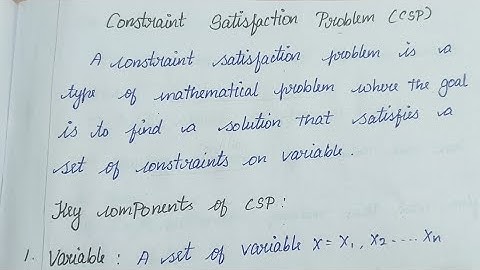 Constraint Satisfaction Problem (CSP)
A constraint satisfaction problem is a
type of mathematical problem where the goal
is to find a solution that satisfies a
set of constraints on variable.
Key components of CSP:
1. Variable: A set of variable x = x₁, x₂ .... xn